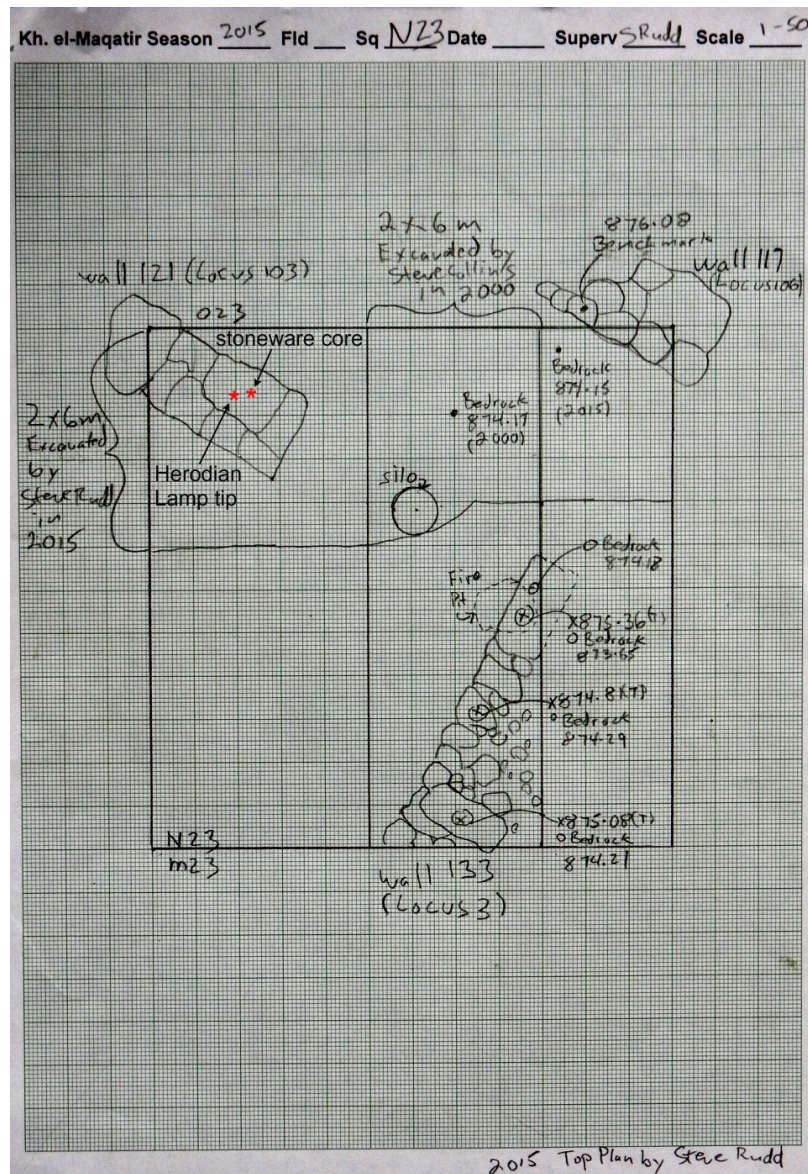 Kh. el-Maqatir Season 2015 Fld ___ Sq N23 Date ___ Superv SRudd Scale 1-50
2 x 6 m
Excavded by
Steve Collins
in 2000
876.08
Benchmark
wall 117
(Locus 106)
wall 121 (Locus 103)
O23
stoneware core
Herodian
Lamp tip
2 x 6m
Excavated
by
Steve Rudd
in
2015
Bedrock
874.17
(2000)
Bedrock
874.15
(2015)
silo
Fire
Pit
O Bedrock
874.18
X875.36(T)
O Bedrock
873.65
X874.8(T)
O Bedrock
874.29
X875.08(T)
O Bedrock
874.21
N23
m23
wall 133
(Locus 3)
2015 Top Plan by Steve Rudd